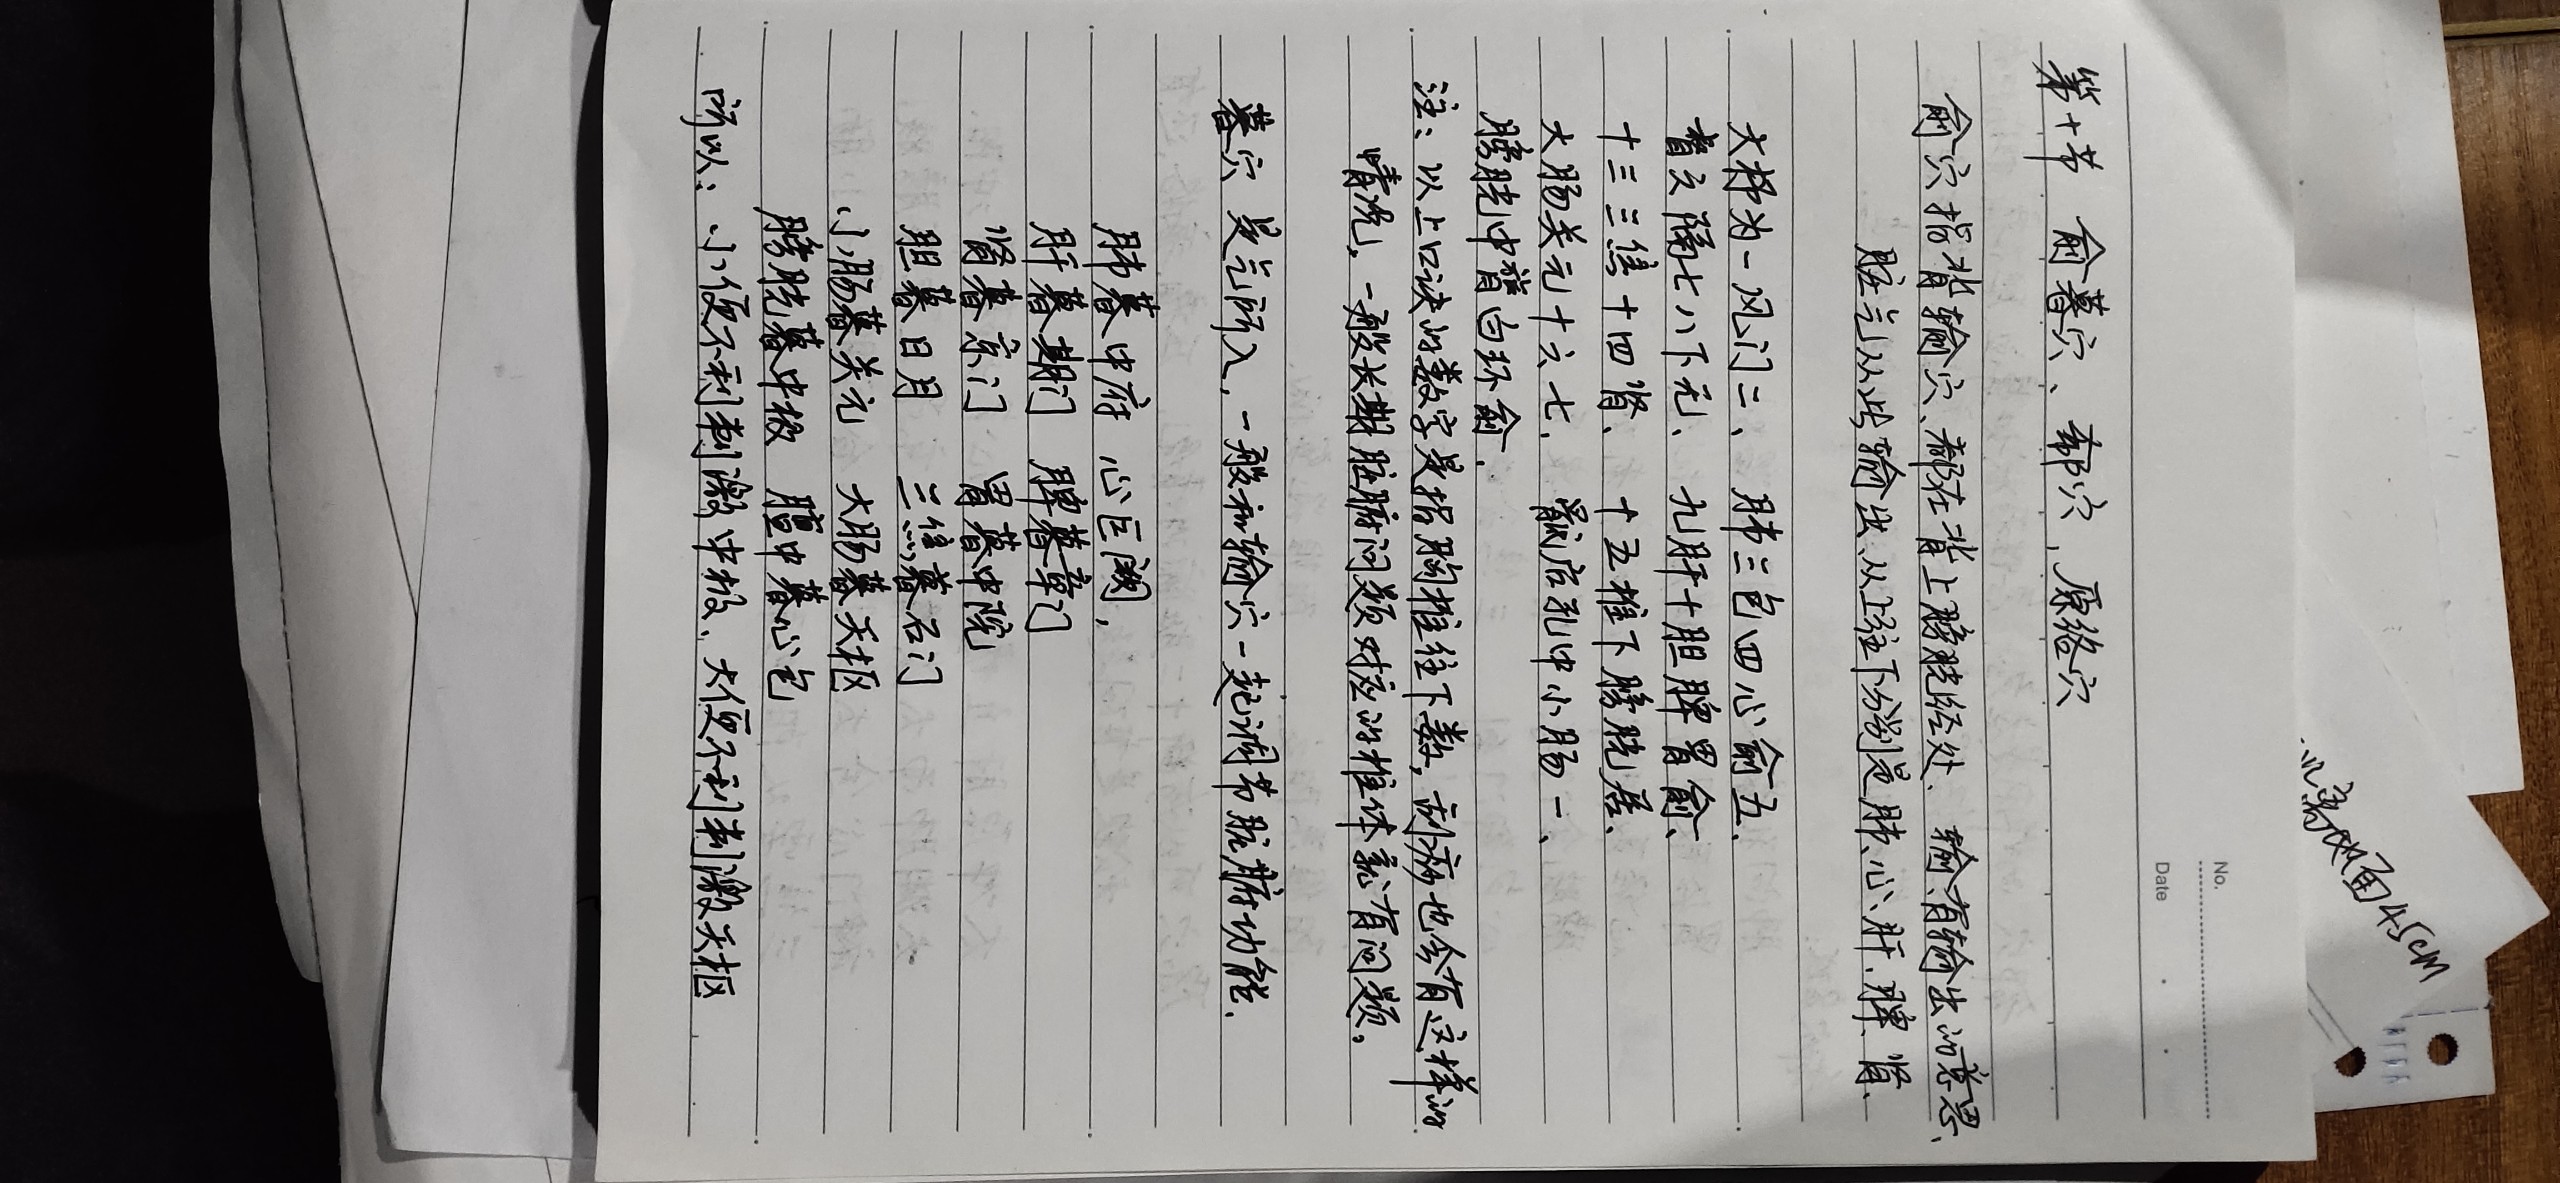 No.
Date
第十节 俞暮穴、郗穴，原络穴
俞穴指背输穴、都在背上膀胱经处、输、有输出的意思、
脏气从此输出、从上往下分别是肺、心、肝、脾、肾、
大杼为一风门二、肺三包四心俞五、
督六膈七八下无、九肝十胆脾胃俞、
十三三焦十四肾、十五椎下膀胱居、
大肠关元十六七、 后孔中小肠一、
膀胱中膂白环俞.
注：以上口诀的数字是指胸椎往下数，刮痧也会有这样的
情况，一般长期脏腑问题对应的椎体就有问题。
暮穴 是气所入，一般和输穴一起调节脏腑功能.
肺暮中府 心巨阙，
肝暮期门 脾暮章门
肾暮京门 胃暮中脘
胆暮日月 三焦暮石门
小肠暮关元 大肠暮天枢
膀胱暮中极 膻中暮心包
所以：小便不利刺激中极、大便不利刺激天枢
45cm